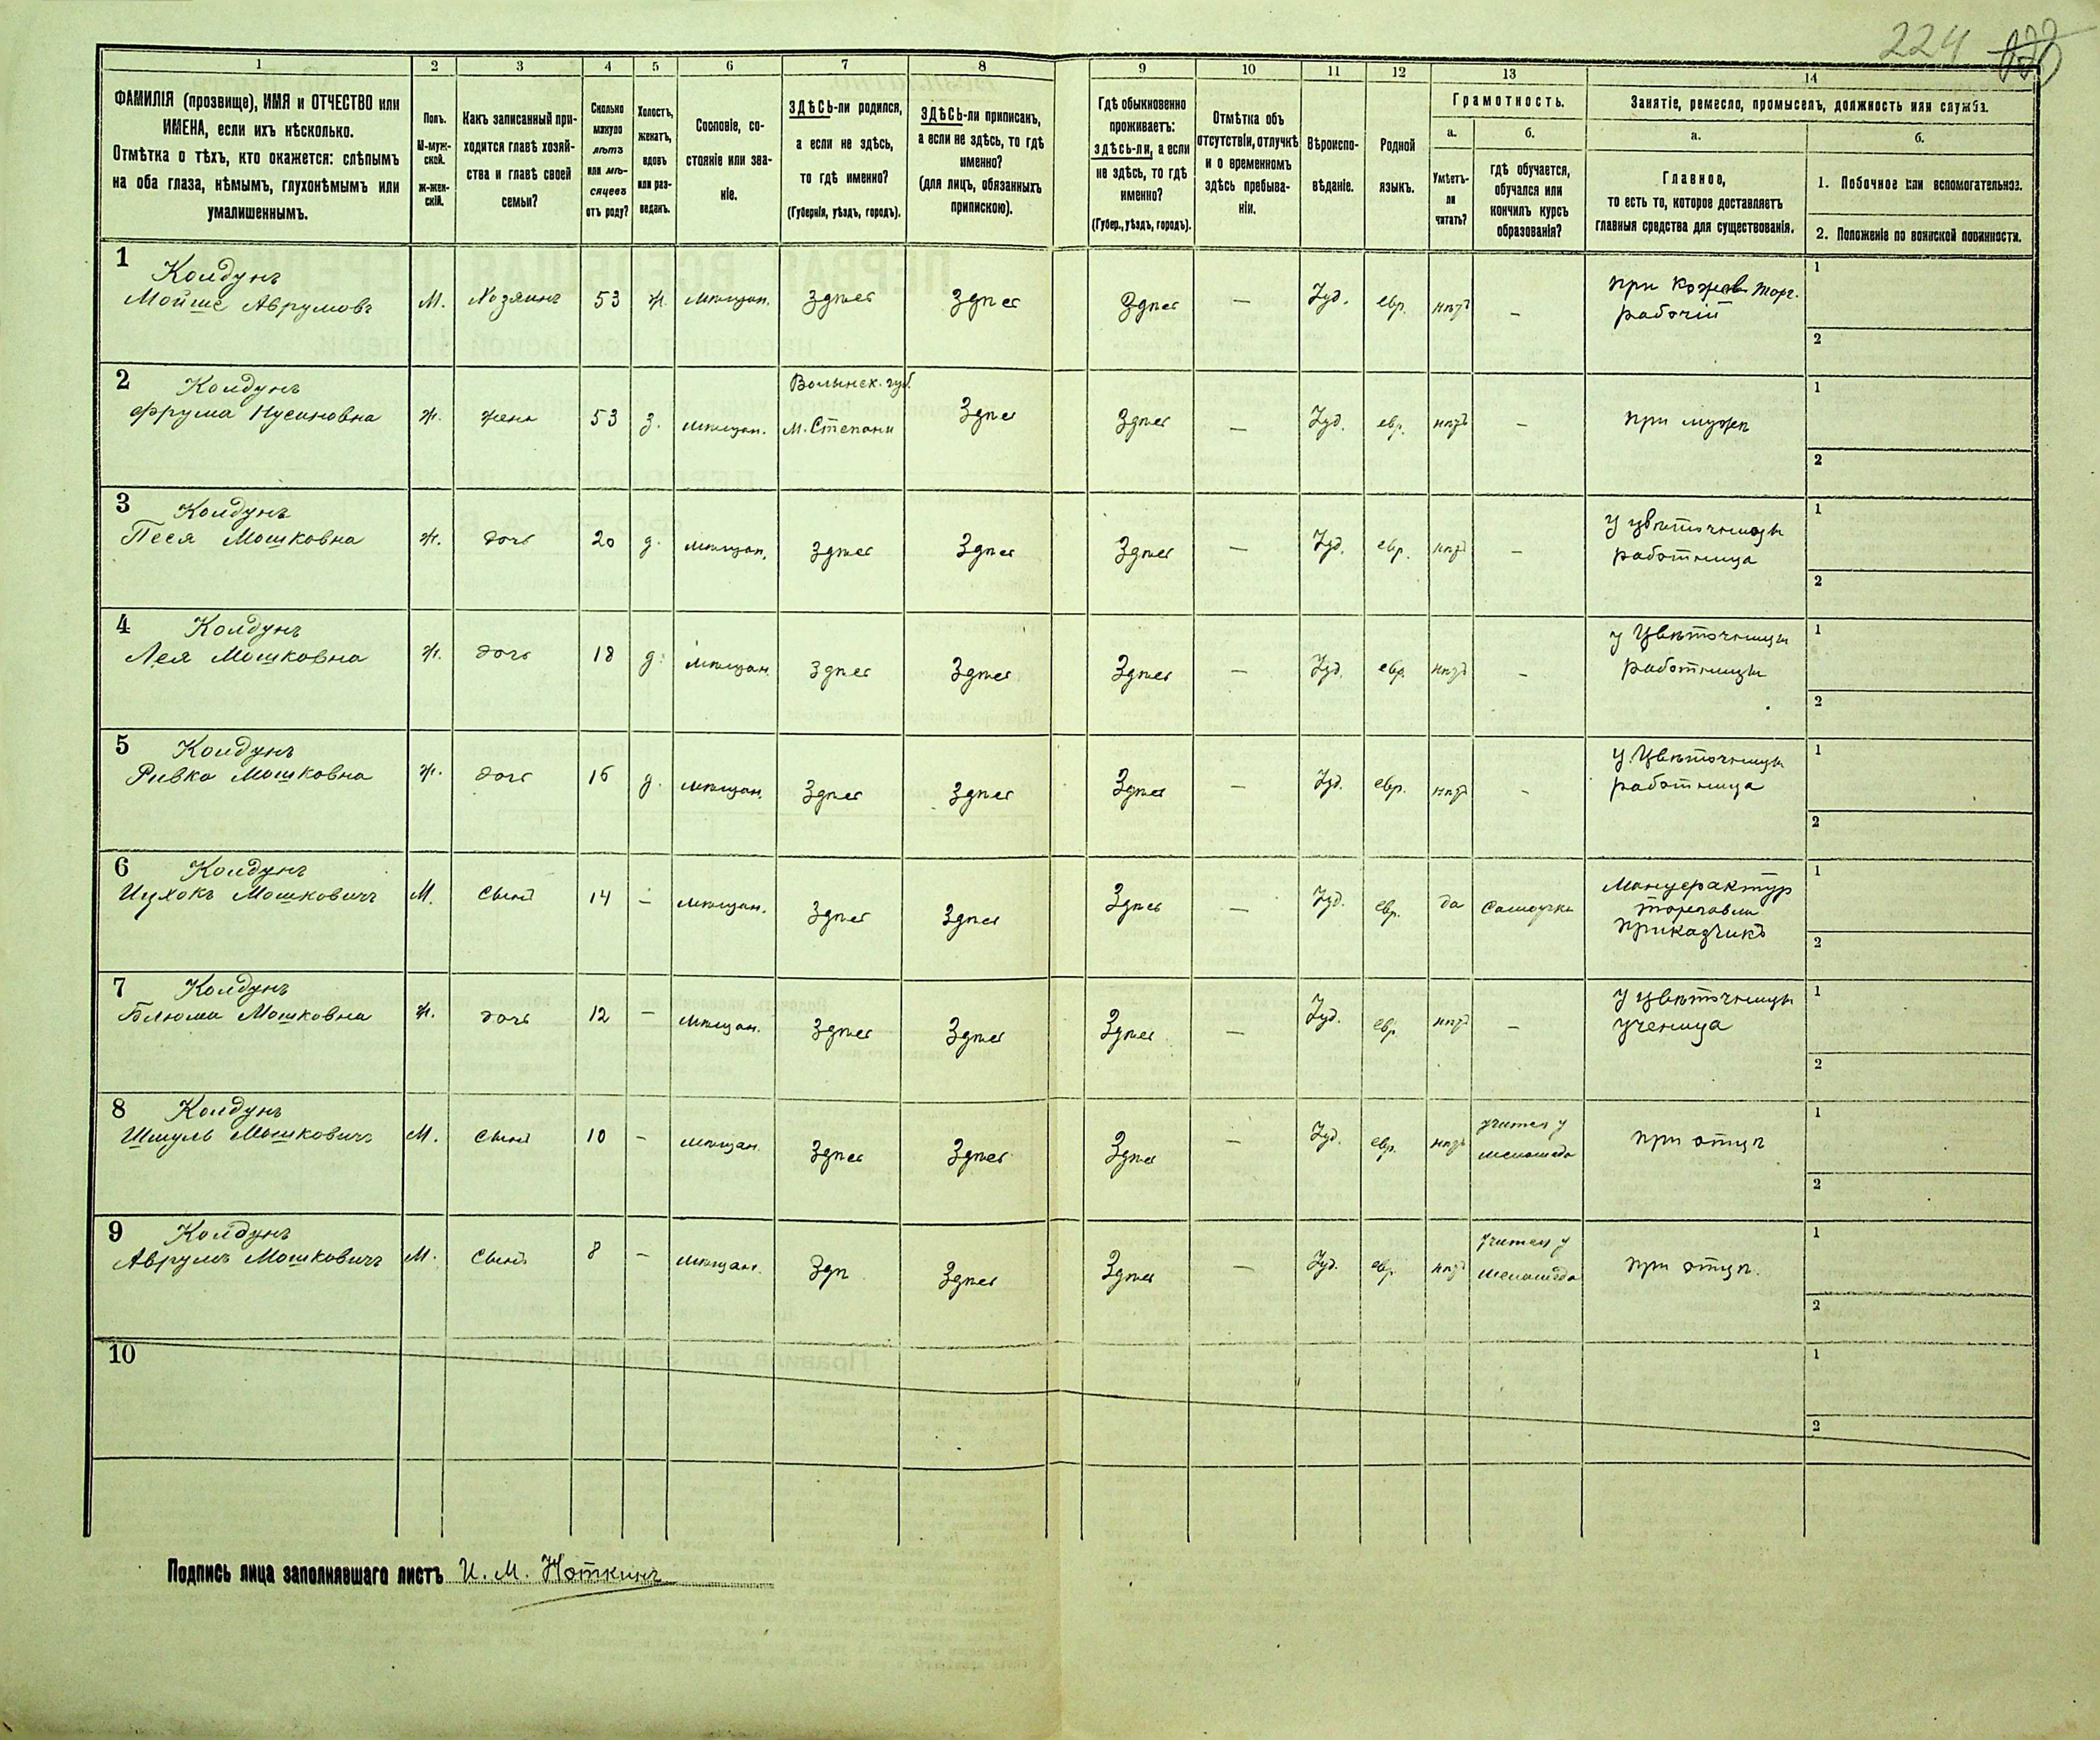 224
1 2 3 4 5 6 7 8 9 10 11 12 13 14
ФАМИЛІЯ (прозвище), ИМЯ и ОТЧЕСТВО или
ИМЕНА, если ихъ нѣсколько.
Отмѣтка о тѣхъ, кто окажется: слѣпымъ
на оба глаза, нѣмымъ, глухонѣмымъ или
умалишеннымъ.
Полъ.
М-муж-
ской.
Ж-жен-
скій.
Какъ записанный при-
ходится главѣ хозяй-
ства и главѣ своей
семьи?
Сколько
минуло
лѣтъ
или мѣ-
сяцевъ
отъ роду?
Холостъ,
женатъ,
вдовъ
или раз-
веденъ.
Сословіе, со-
стояніе или зва-
ніе.
ЗДѢСЬ-ли родился,
а если не здѣсь,
то гдѣ именно?
(Губернія, уѣздъ, городъ).
ЗДѢСЬ-ли приписанъ,
а если не здѣсь, то гдѣ
именно?
(для лицъ, обязанныхъ
припискою).
Гдѣ обыкновенно
проживаетъ:
здѣсь-ли, а если
не здѣсь, то гдѣ
именно?
(Губер., уѣздъ, городъ).
Отмѣтка объ
отсутствіи, отлучкѣ
и о временномъ
здѣсь пребыва-
ніи.
Вѣроиспо-
вѣданіе.
Родной
языкъ.
Грамотность.
а.
Умѣетъ-
ли
читать?
б.
гдѣ обучается,
обучался или
кончилъ курсъ
образованія?
Занятіе, ремесло, промыселъ, должность или служба.
а.
Главное,
то есть то, которое доставляетъ
главныя средства для существованія.
б.
1. Побочное или вспомогательное.
2. Положеніе по воинской повинности.
1 Колдунъ
Мойше Аврумовъ М. Хозяинъ 53 ж. мѣщан. Здѣсь Здѣсь Здѣсь — Іуд. евр. нѣтъ — при кожев. торг.
рабочій
1
2
2 Колдунъ
Фрума Нусиновна ж. жена 53 з. мѣщан. Волынск. губ.
м. Степани Здѣсь Здѣсь — Іуд. евр. нѣтъ — при мужѣ
1
2
3 Колдунъ
Песя Мошковна ж. дочь 20 д. мѣщан. Здѣсь Здѣсь Здѣсь — Іуд. евр. нѣтъ — у цвѣточницы
работница
1
2
4 Колдунъ
Лея Мошковна ж. дочь 18 д. мѣщан. Здѣсь Здѣсь Здѣсь — Іуд. евр. нѣтъ — у цвѣточницы
работницы
1
2
5 Колдунъ
Ривка Мошковна ж. дочь 16 д. мѣщан. Здѣсь Здѣсь Здѣсь — Іуд. евр. нѣтъ — у цвѣточницы
работница
1
2
6 Колдунъ
Ицхокъ Мошковичъ М. сынъ 14 — мѣщан. Здѣсь Здѣсь Здѣсь — Іуд. евр. да самоучка Мануфактур
торговли
приказчикъ
1
2
7 Колдунъ
Блюма Мошковна ж. дочь 12 — мѣщан. Здѣсь Здѣсь Здѣсь — Іуд. евр. нѣтъ — у цвѣточницы
ученица
1
2
8 Колдунъ
Шмуль Мошковичъ М. сынъ 10 — мѣщан. Здѣсь Здѣсь Здѣсь — Іуд. евр. нѣтъ учится у
меламеда при отцѣ
1
2
9 Колдунъ
Аврумъ Мошковичъ М. сынъ 8 — мѣщан. Здѣ Здѣсь Здѣсь — Іуд. евр. нѣтъ учится у
меламеда при отцѣ.
1
2
10
1
2
Подпись лица заполнявшаго листъ И. М. Ноткинъ